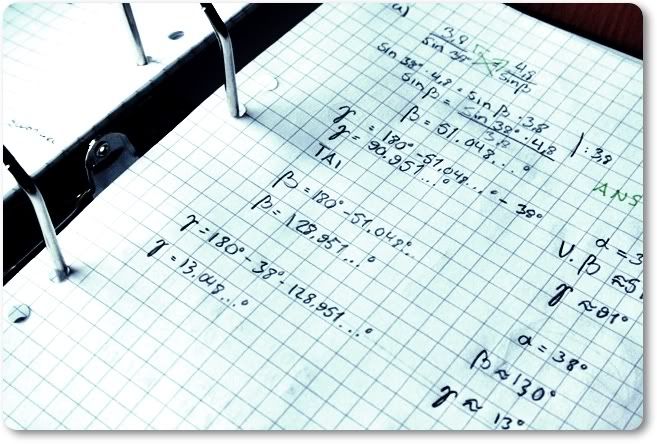 a)
3,8 / sin 38° = 4,8 / sinβ
sin 38° · 4,8 = sinβ · 3,8 | : 3,8
sinβ = sin 38° · 4,8 / 3,8
β = 51.048...°
γ = 180° - 51.048...° - 38°
γ = 90.951...°
TAI
β = 180° - 51.048°...
β = 128.951...°
γ = 180° - 38° - 128.951...°
γ = 13.048...°
ANS
α = 3
V. β ≈ 51
γ ≈ 91°
α = 38°
β ≈ 130°
γ ≈ 13°